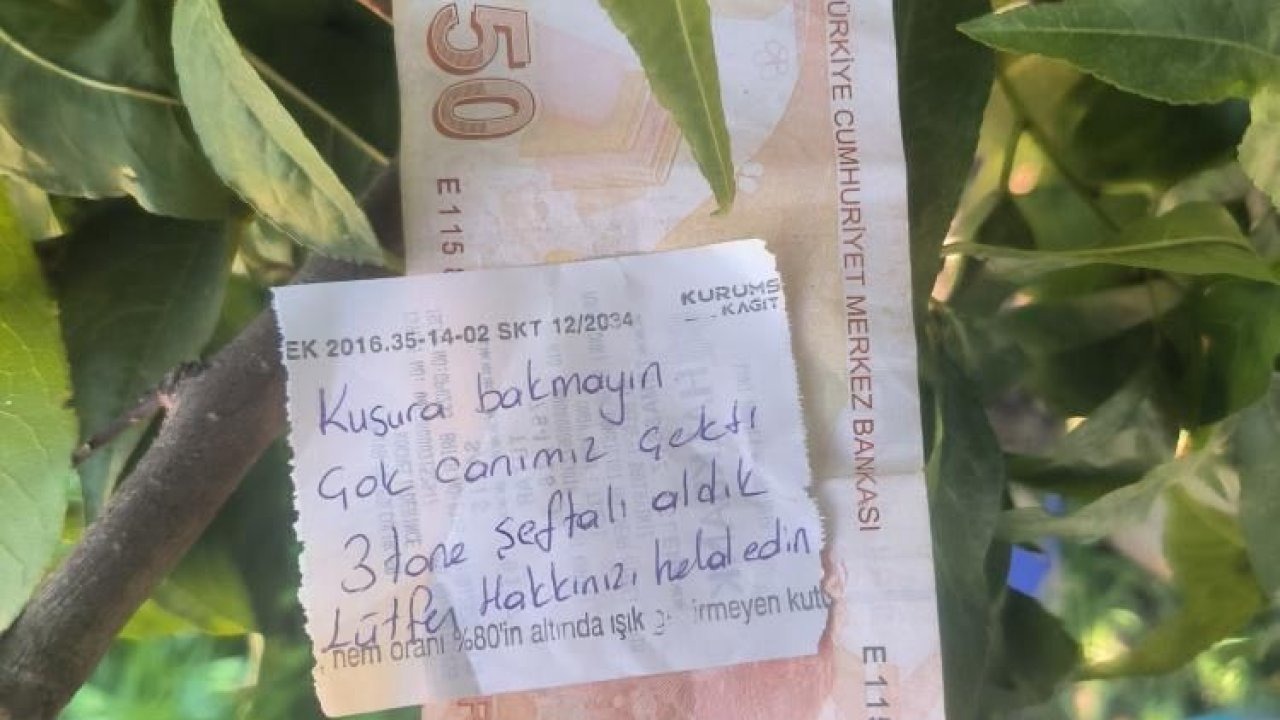 50
E 115
TÜRKİYE CUMHURİYET MERKEZ BANKASI
KURUMS
KAĞIT
EK 2016.35-14-02 SKT 12/2034
Kusura bakmayın
Çok canımız çekti
3 tane şeftali aldık
Lütfen Hakkınızı helal edin
nem oranı %80'in altında ışık irmeyen kutu
E 115